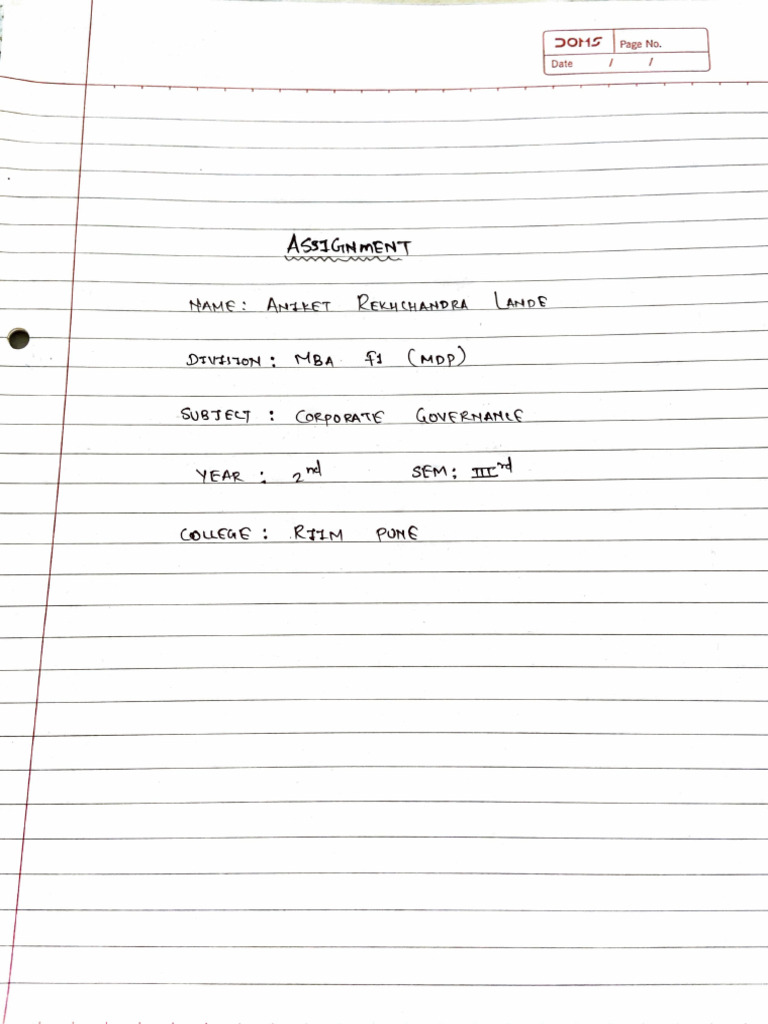 DOMS Page No.
Date / /
ASSIGNMENT
NAME: ANIKET REKHCHANDRA LANDE
DIVISION: MBA F1 (MDP)
SUBJECT: CORPORATE GOVERNANCE
YEAR: 2nd SEM: IIIrd
COLLEGE: RIIM PUNE